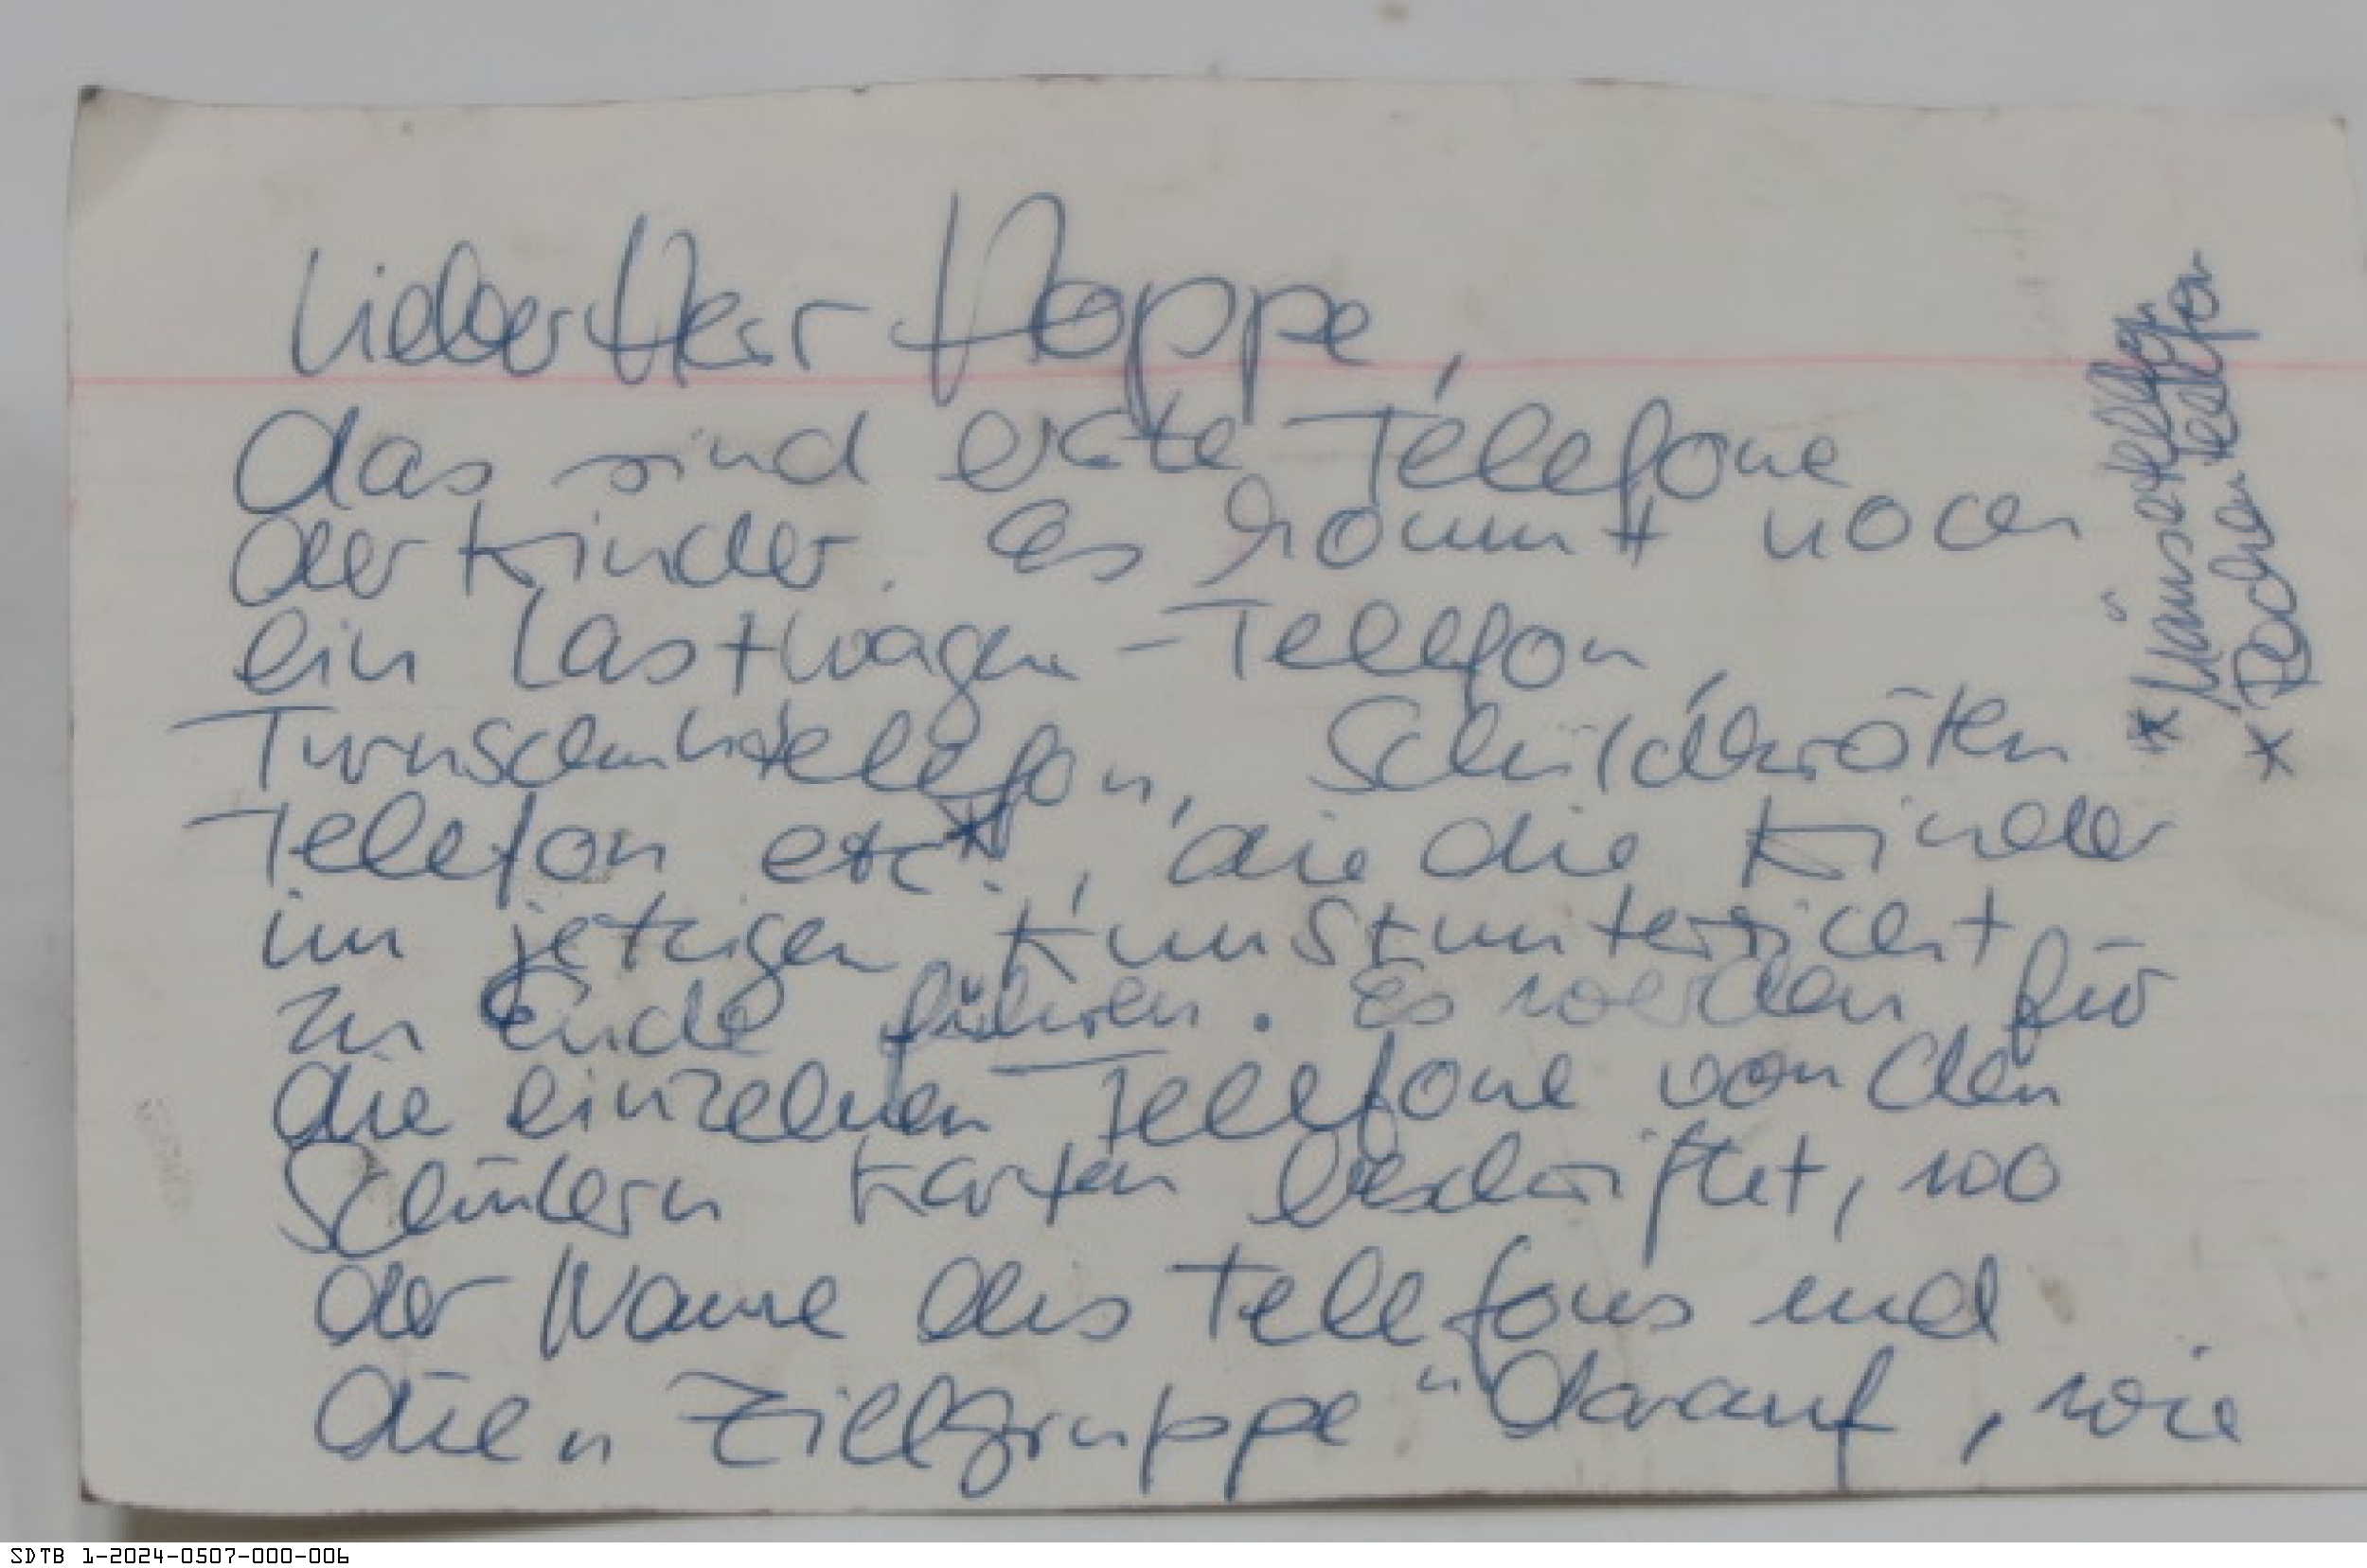 Lieber Herr Hoppe,
das sind erste Telefone
der Kinder. Es kommt noch
ein Lastwagen-Telefon,
Turnschuhtelefon, Schildkröten
Telefon etc*., die die Kinder
im jetzigen Kunstunterricht
zu Ende führen. Es werden für
die einzelnen Telefone von den
Schülern Karten beschriftet, wo
der Name des Telefons und
die „Zielgruppe" darauf, wie
* Mäusetelefon
* Drachentelefon
SDTB 1-2024-0507-000-006